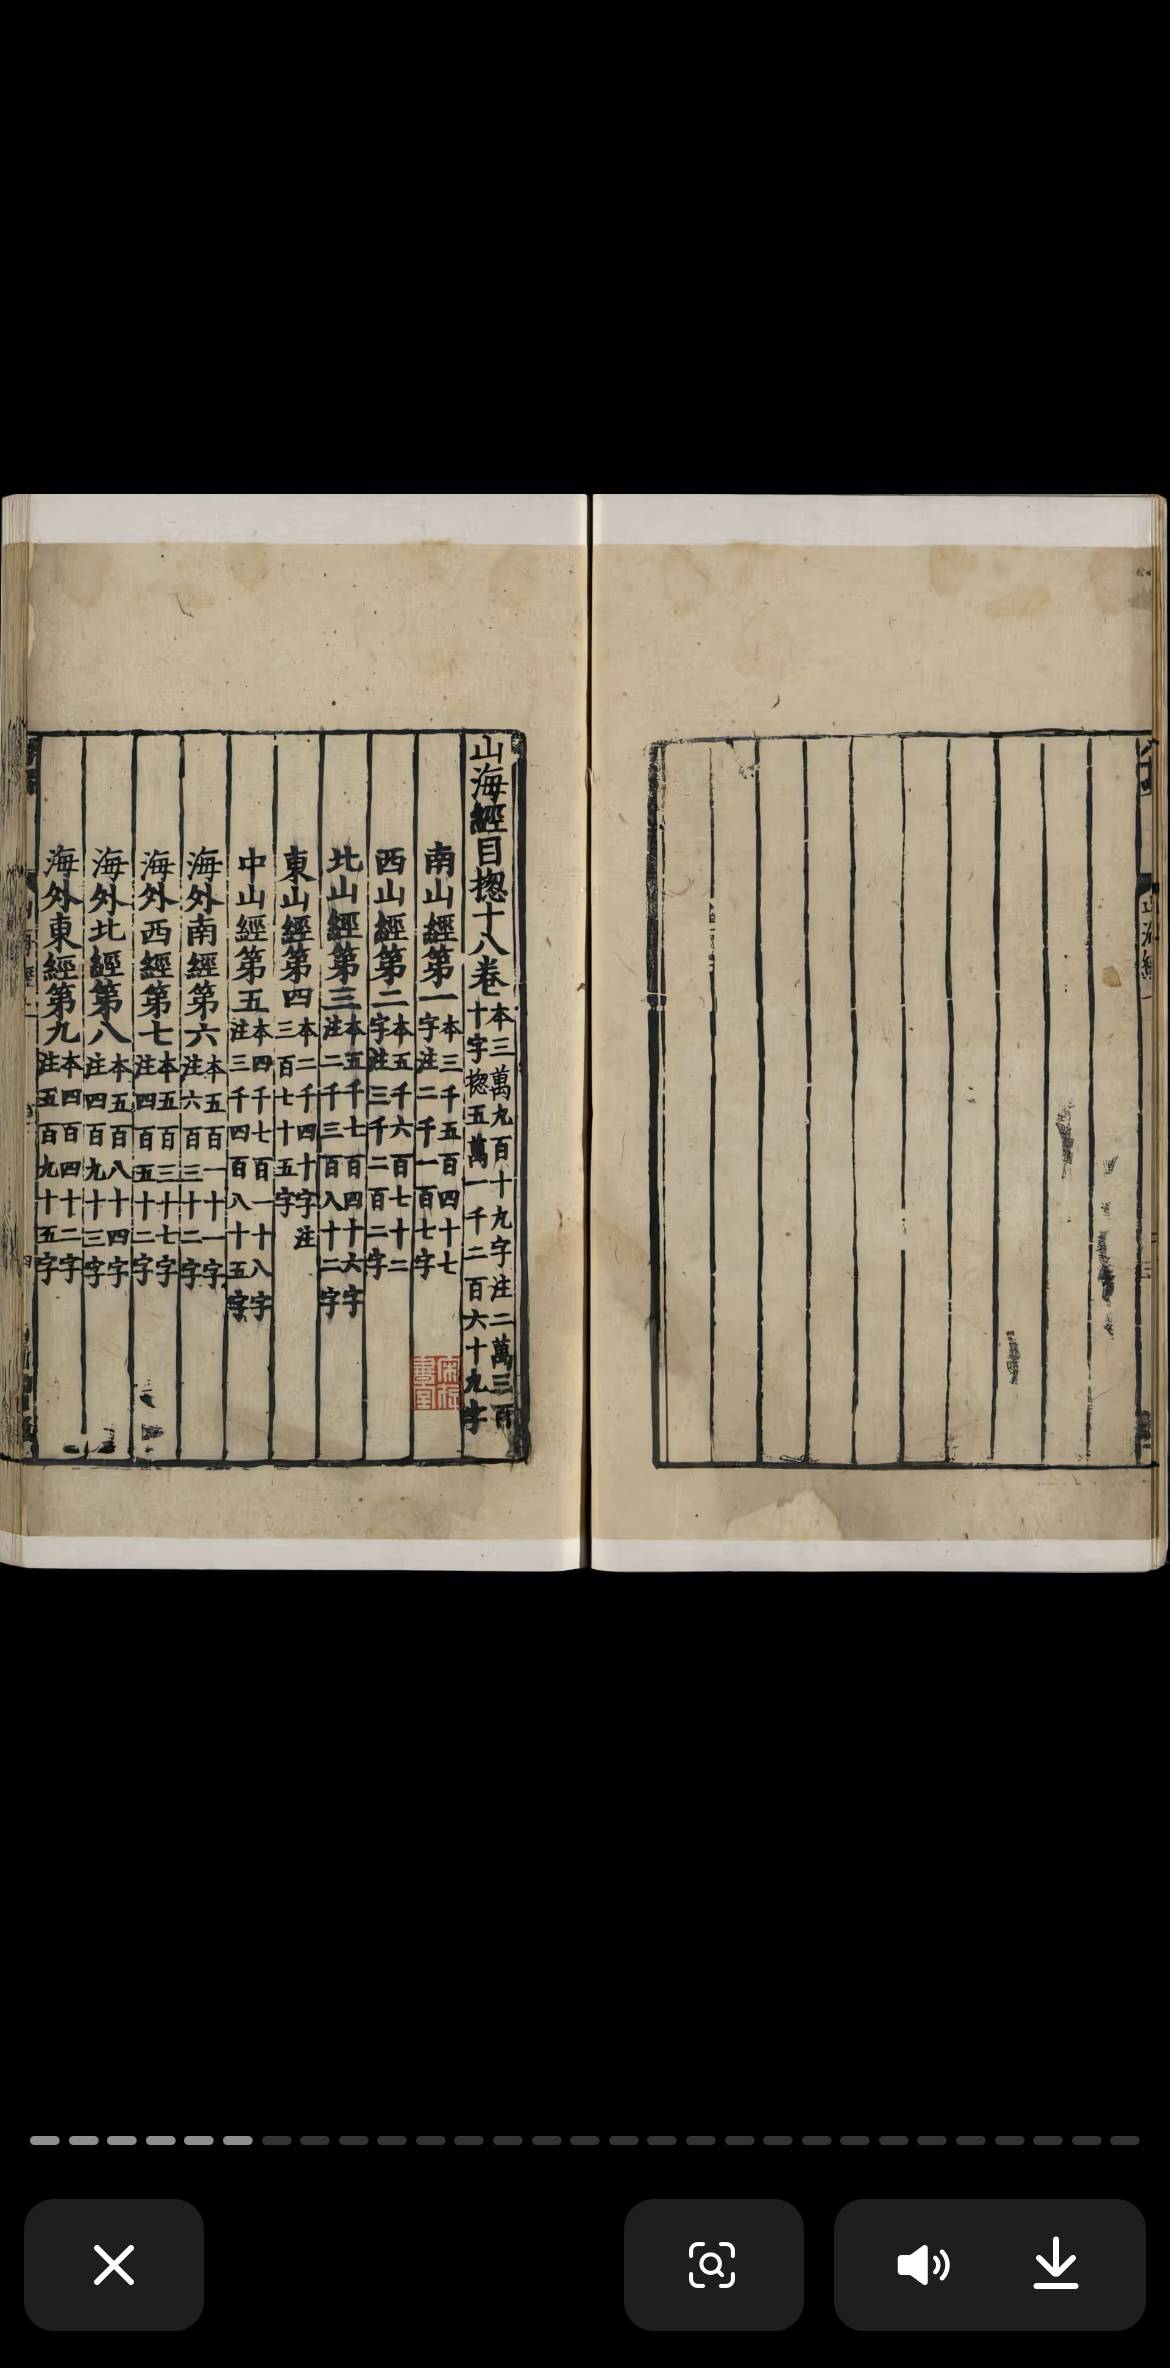 山海經目揔十八卷本三萬九百十九字注二萬三百
十字揔五萬一千二百六十九字
南山經第一本三千五百四十七
字注二千一百七字
西山經第二本五千六百七十二
字注三千二百二字
北山經第三本五千七百四十六字
注二千三百八十二字
東山經第四本二千四十字注
三百七十五字
中山經第五本四千七百一十八字
注三千四百八十五字
海外南經第六本五百一十一字
注六百三十二字
海外西經第七本五百三十七字
注四百五十二字
海外北經第八本五百八十四字
注四百九十三字
海外東經第九本四百四十二字
注五百九十五字